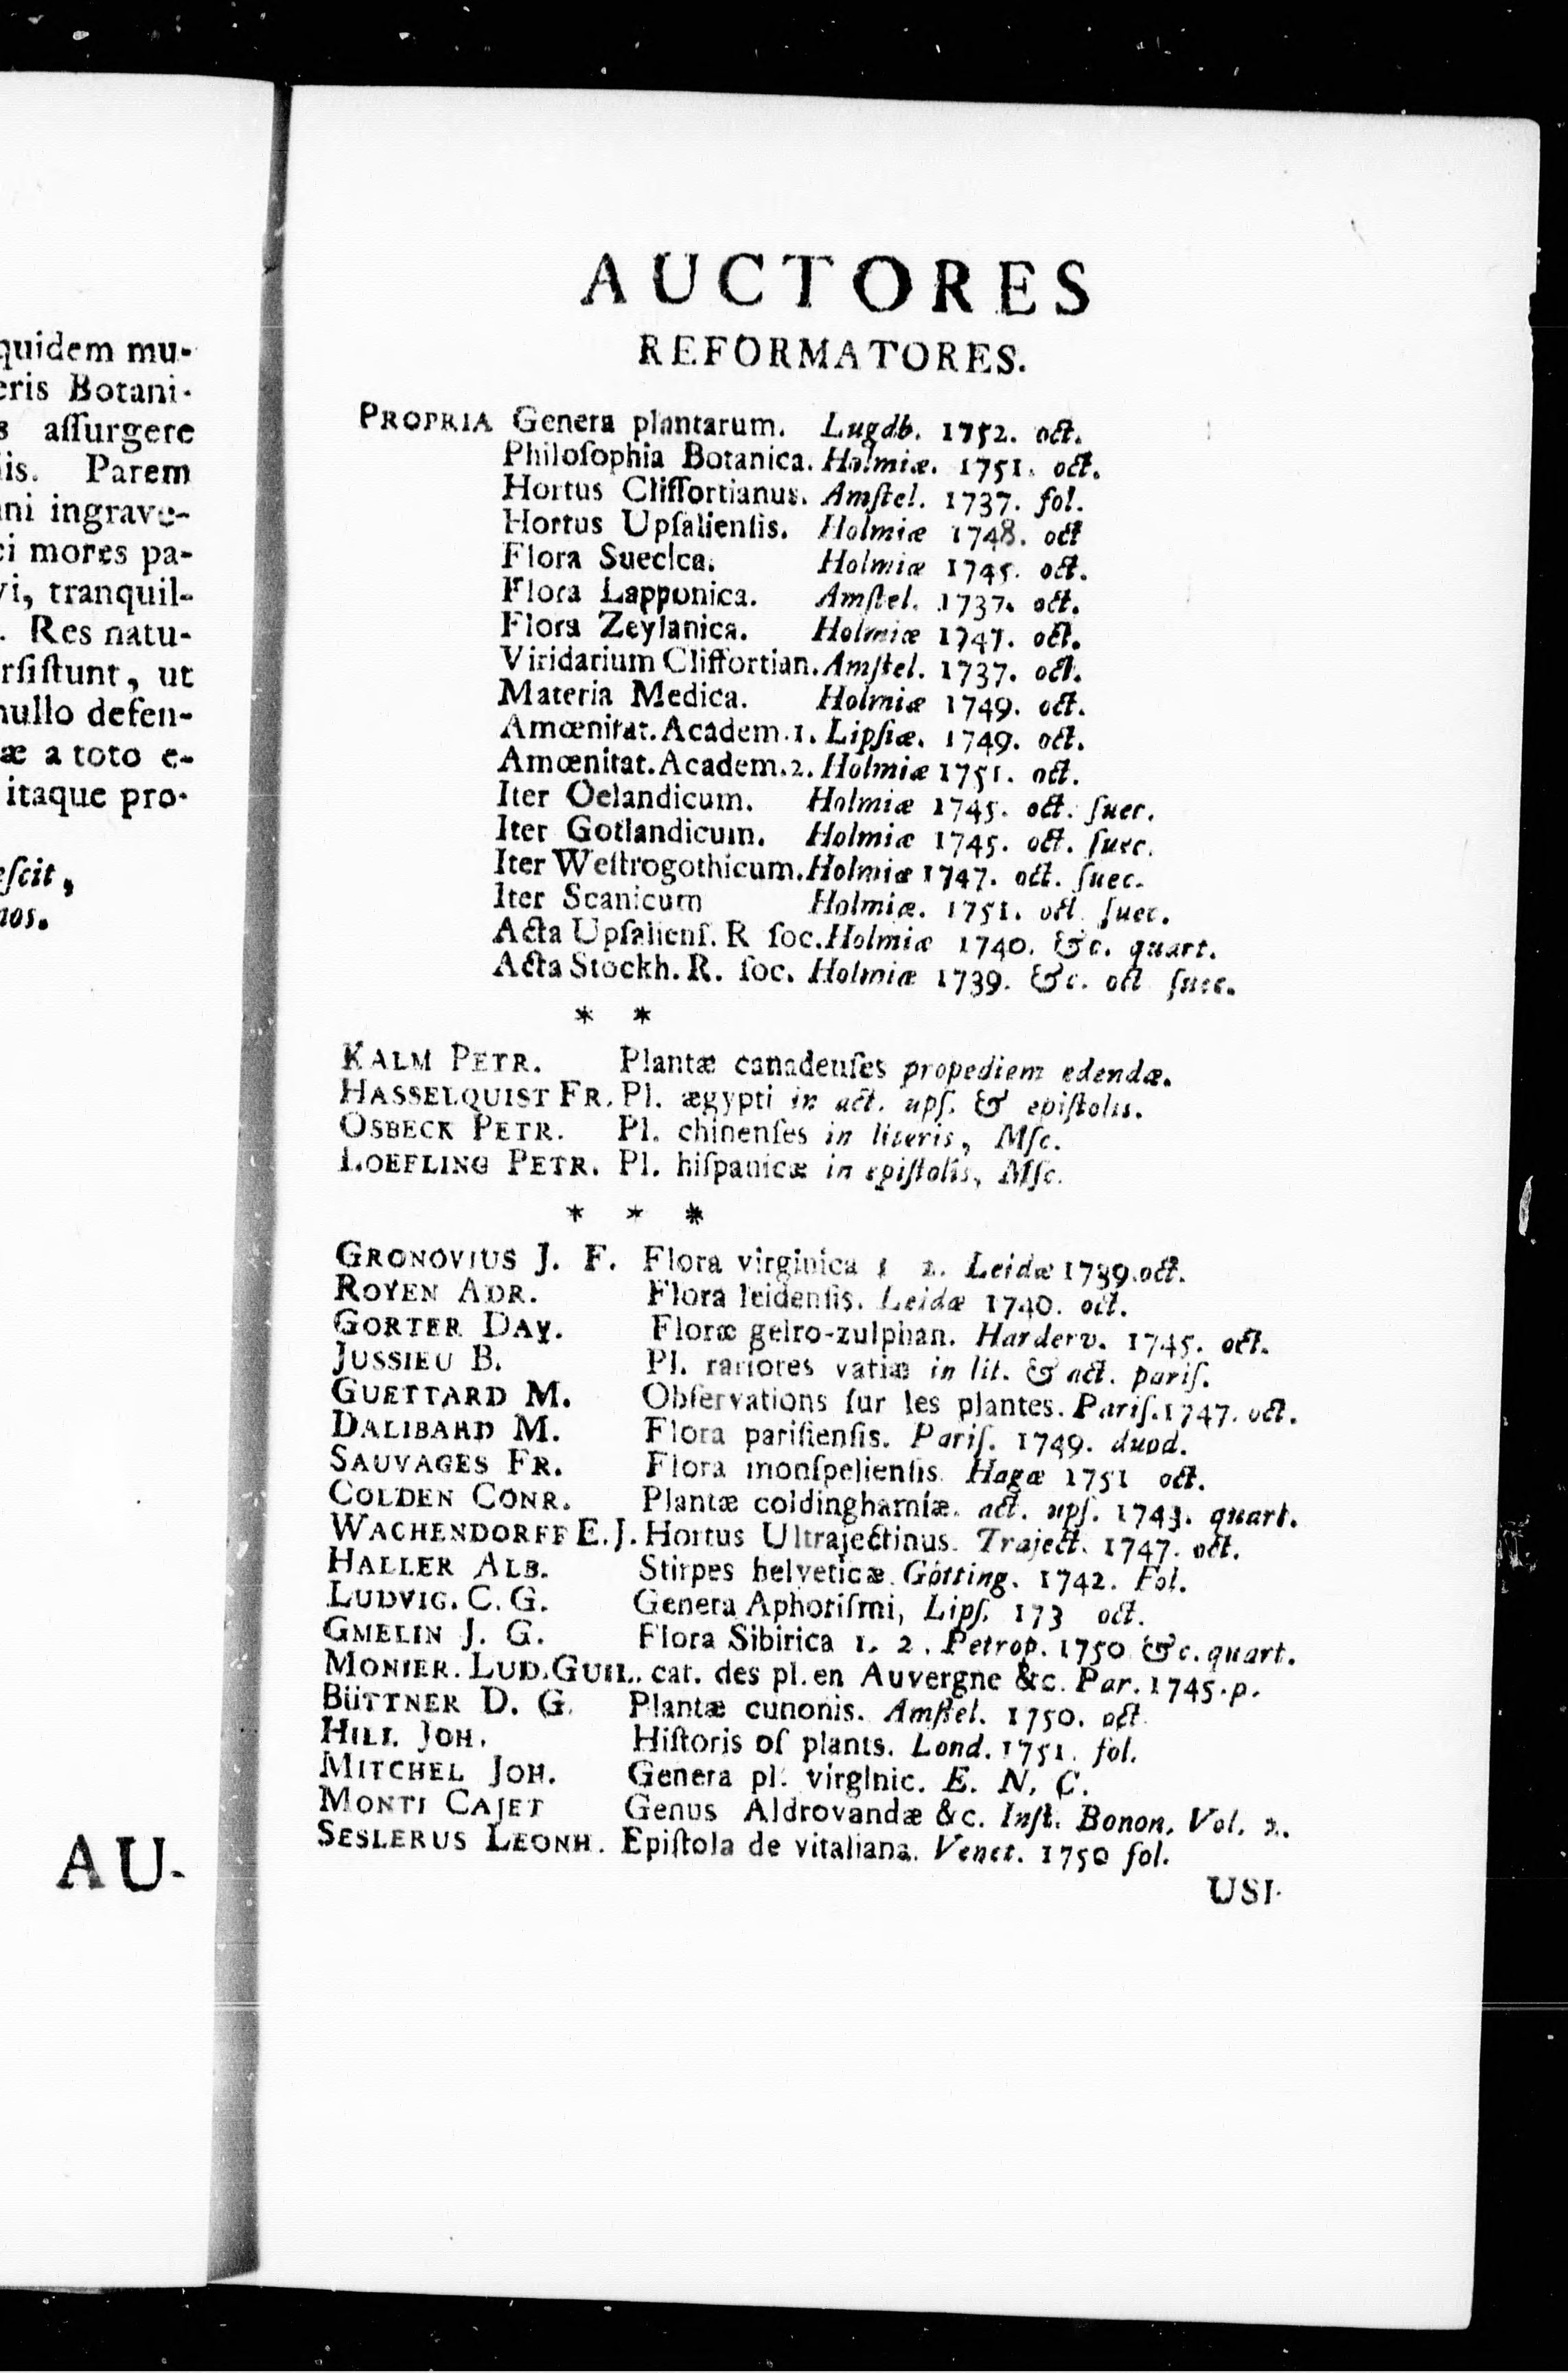 quidem mu-
eris Botani-
s aſſurgere
iis. Parem
ni ingrave-
ci mores pa-
vi, tranquil-
. Res natu-
rſiſtunt, ut
nullo defen-
æ a toto e-
itaque pro-
eſcit,
nos.
AU-
AUCTORES
REFORMATORES.
PROPRIA Genera plantarum. Lugdb. 1752. oct.
Philoſophia Botanica. Holmiæ. 1751. oct.
Hortus Cliffortianus. Amſtel. 1737. fol.
Hortus Upſalienſis. Holmiæ 1748. oct
Flora Suecica. Holmiæ 1745. oct.
Flora Lapponica. Amſtel. 1737. oct.
Flora Zeylanica. Holmiæ 1747. oct.
Viridarium Cliffortian. Amſtel. 1737. oct.
Materia Medica. Holmiæ 1749. oct.
Amœnitat. Academ. 1. Lipſiæ. 1749. oct.
Amœnitat. Academ. 2. Holmiæ 1751. oct.
Iter Oelandicum. Holmiæ 1745. oct. ſuec.
Iter Gotlandicum. Holmiæ 1745. oct. ſuec.
Iter Weſtrogothicum. Holmiæ 1747. oct. ſuec.
Iter Scanicum Holmiæ. 1751. oct ſuec.
Acta Upſalienſ. R ſoc. Holmiæ 1740. &c. quart.
Acta Stockh. R. ſoc. Holmiæ 1739. &c. oct ſuec.
* *
KALM PETR. Plantæ canadenſes propediem edendæ.
HASSELQUIST FR. Pl. ægypti in act. upſ. & epiſtolis.
OSBECK PETR. Pl. chinenſes in literis, Mſc.
LOEFLING PETR. Pl. hiſpanicæ in epiſtolis, Mſc.
* * *
GRONOVIUS J. F. Flora virginica 1 2. Leidæ 1739. oct.
ROYEN ADR. Flora leidenſis. Leidæ 1740. oct.
GORTER DAV. Floræ gelro-zulphan. Harderv. 1745. oct.
JUSSIEU B. Pl. rariores variæ in lit. & act. pariſ.
GUETTARD M. Obſervations ſur les plantes. Pariſ. 1747. oct.
DALIBARD M. Flora pariſienſis. Pariſ. 1749. duod.
SAUVAGES FR. Flora monſpelienſis. Hagæ 1751 oct.
COLDEN CONR. Plantæ coldinghamiæ. act. upſ. 1743. quart.
WACHENDORFF E. J. Hortus Ultrajectinus. Traject. 1747. oct.
HALLER ALB. Stirpes helveticæ. Götting. 1742. Fol.
LUDVIG. C. G. Genera Aphoriſmi, Lipſ. 173 oct.
GMELIN J. G. Flora Sibirica 1. 2. Petrop. 1750 &c. quart.
MONIER. LUD. GUIL. cat. des pl. en Auvergne &c. Par. 1745. p.
BüTTNER D. G. Plantæ cunonis. Amſtel. 1750. oct.
HILL JOH. Hiſtoris of plants. Lond. 1751. fol.
MITCHEL JOH. Genera pl. virginic. E. N. C.
MONTI CAJET Genus Aldrovandæ &c. Inſt. Bonon. Vol. 2.
SESLERUS LEONH. Epiſtola de vitaliana. Venet. 1750 fol.
USI-